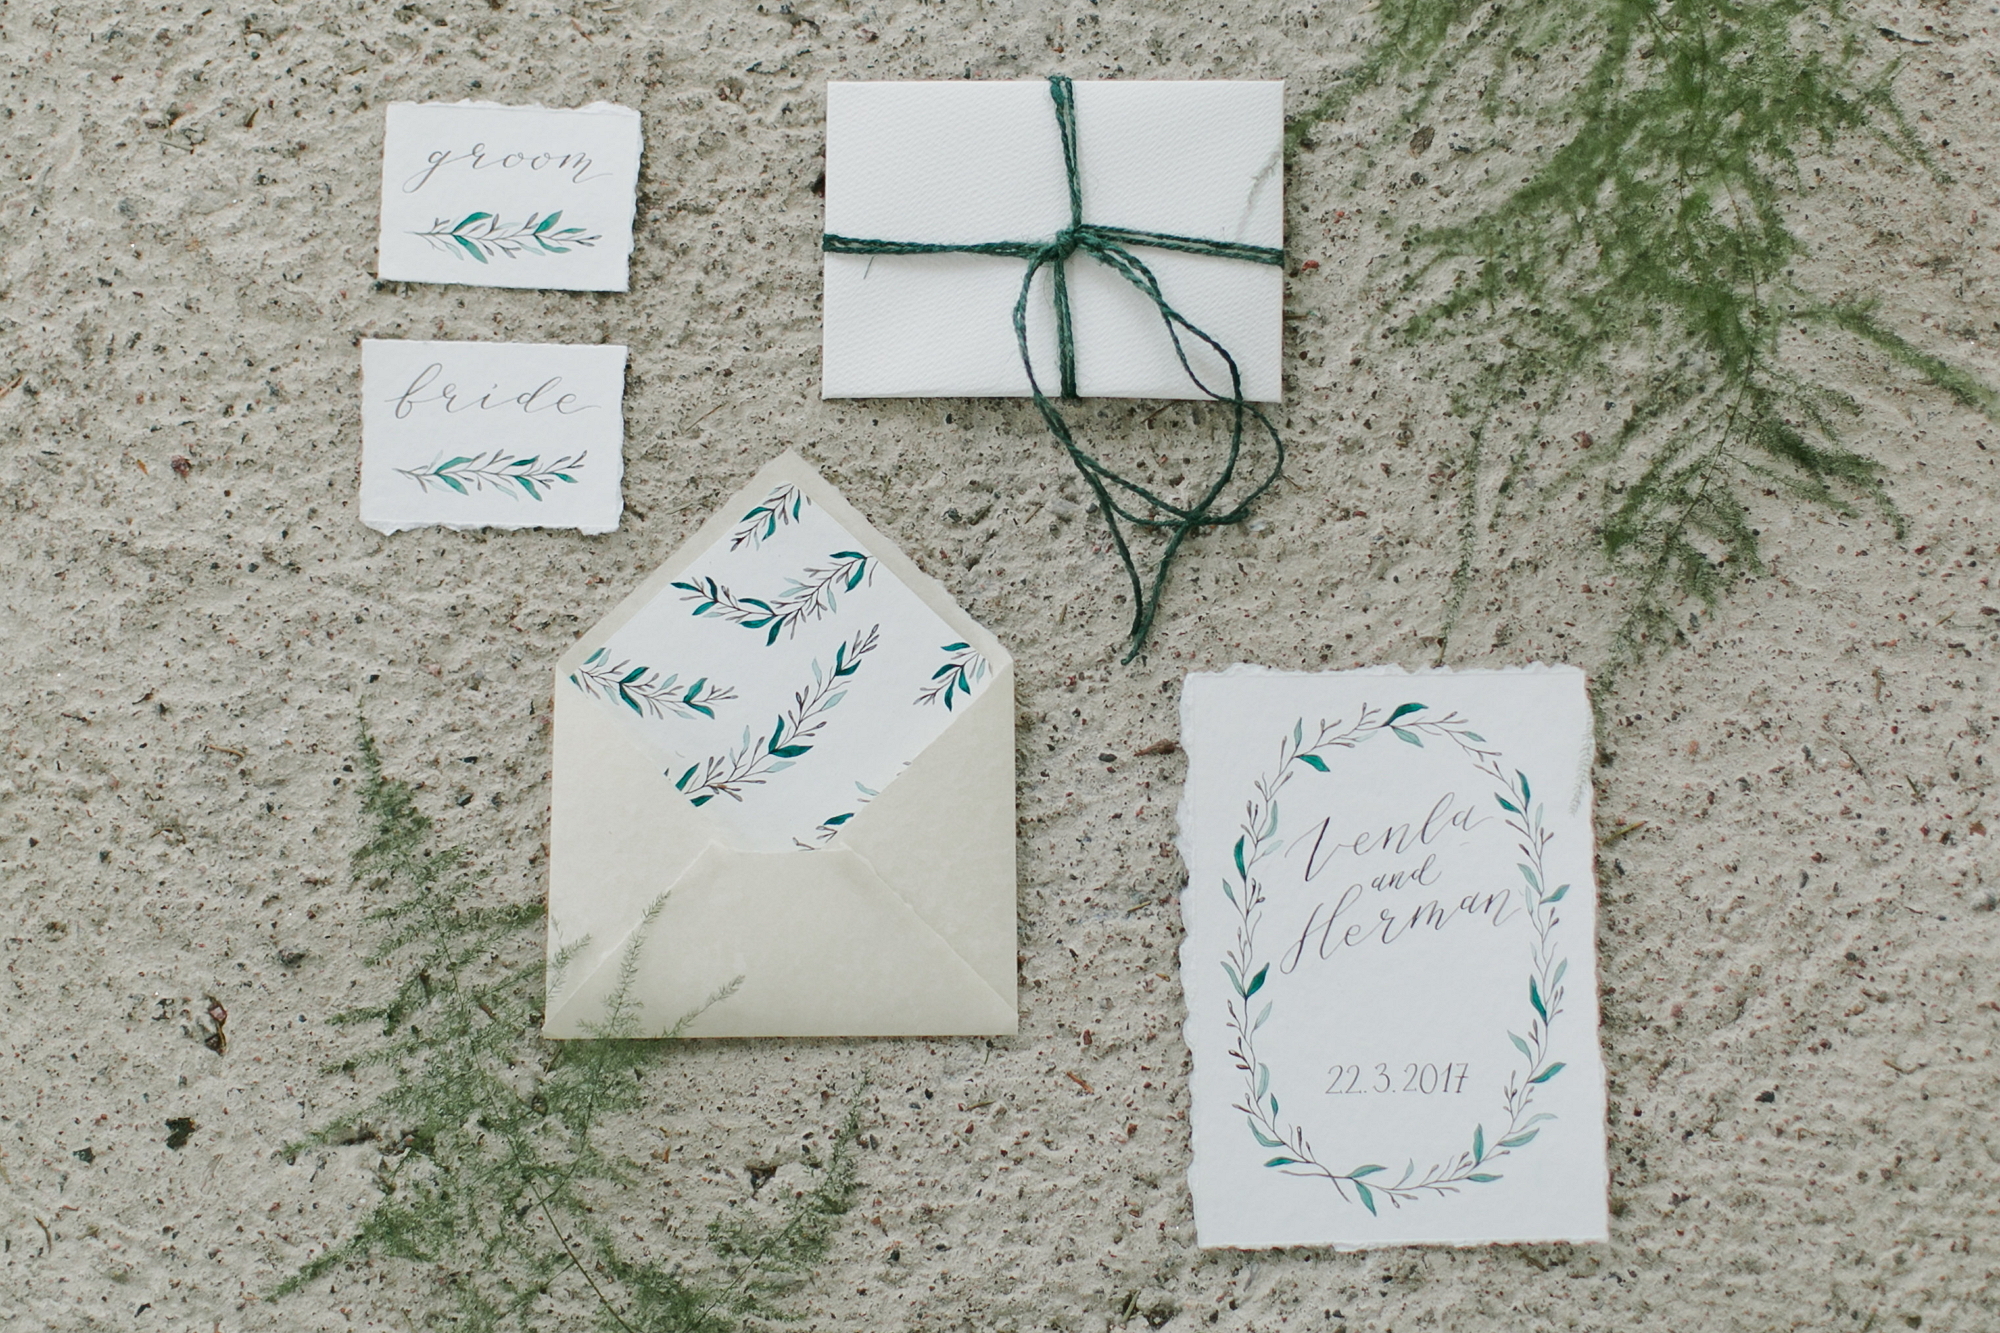 groom
bride
Venla
and
Herman
22.3.2017